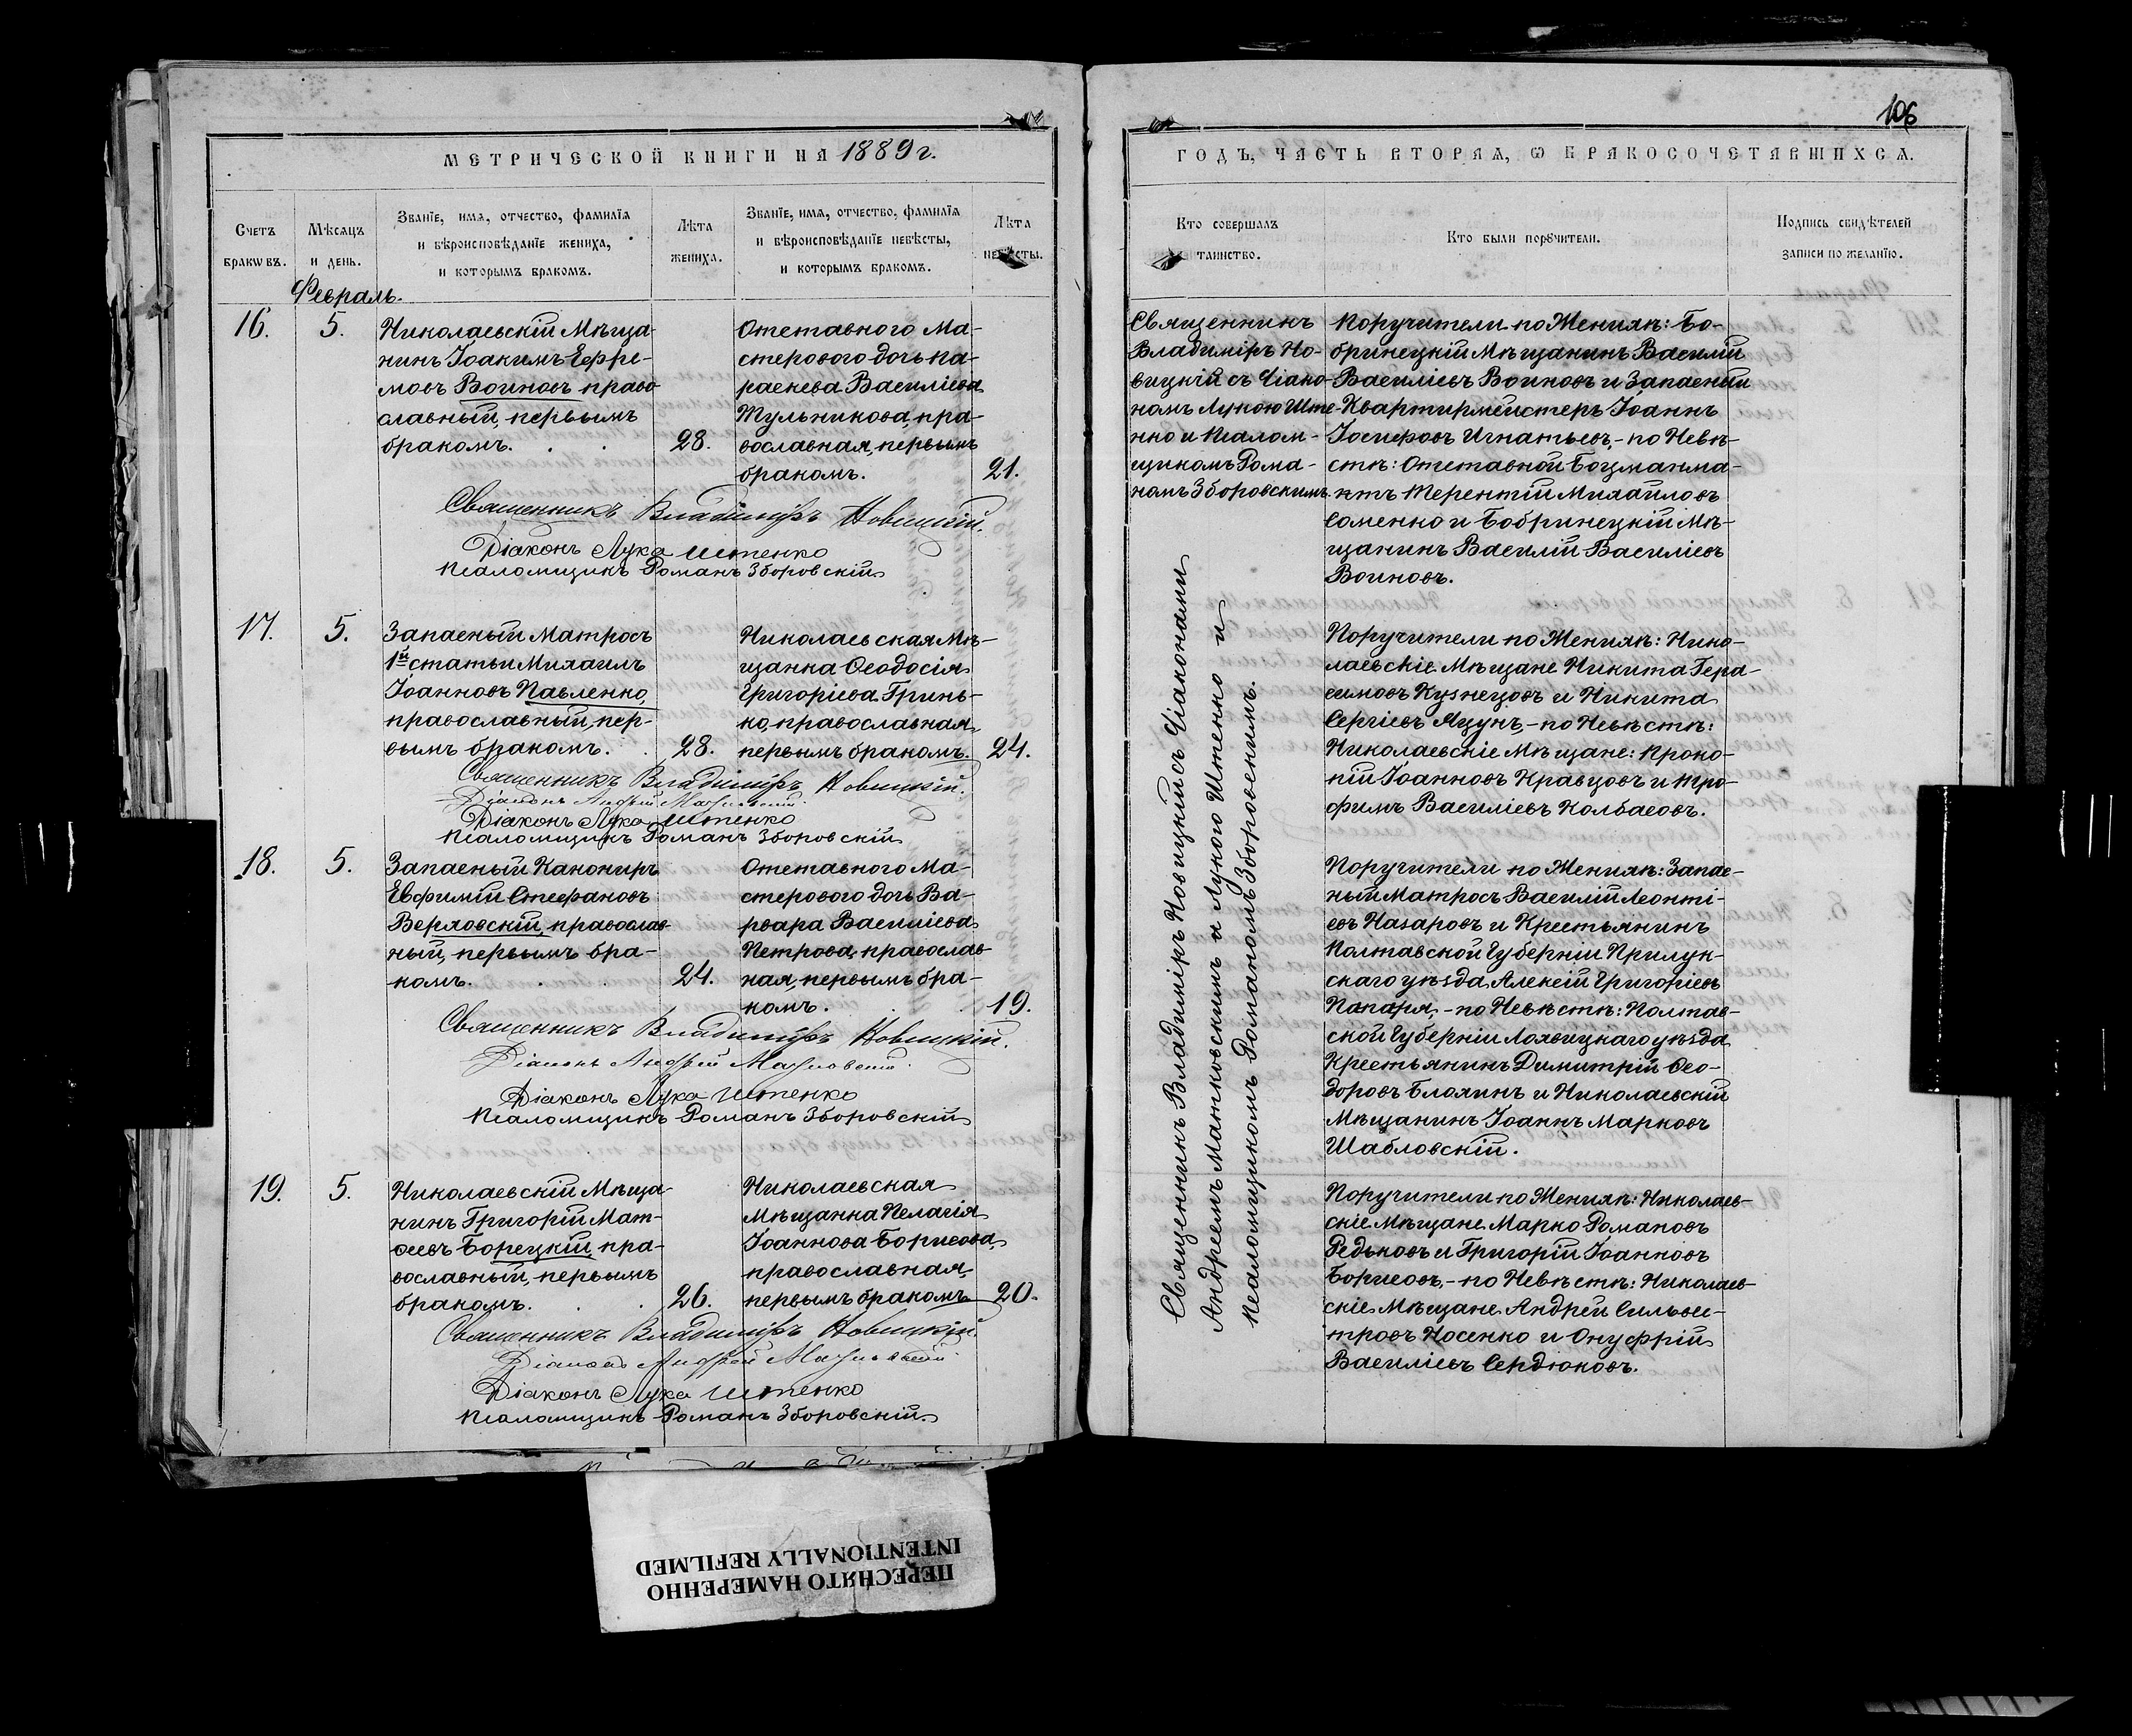 МЕТРИЧЕСКОЙ КНИГИ НА 1889 г.
Счетъ браковъ.
Мѣсяцъ и день.
Званіе, имя, отчество, фамилія
и вѣроисповѣданіе жениха,
и которымъ бракомъ.
Лѣта
жениха.
Званіе, имя, отчество, фамилія
и вѣроисповѣданіе невѣсты,
и которымъ бракомъ.
Лѣта
невѣсты.
Февраль.
16.
5.
Николаевскій Мѣща-
нинъ Іоакимъ Ефре-
мовъ Воиновъ право
славный, первымъ
бракомъ. . .
28.
Отставного Ма-
стерового дочь Па-
раскева Василіева
Тульникова, пра-
вославная, первымъ
бракомъ.
21.
Священникъ Владиміръ Новицкій.
Діаконъ Лука Штенко
Псаломщикъ Романъ Зборовскій
17.
5.
Запасный Матросъ
1й статьи Михаилъ
Іоанновъ Павленко,
православный, пер-
вымъ бракомъ. .
28.
Николаевская Мѣ-
щанка Ѳеодосія
Григоріева Гринь-
ко, православная,
первымъ бракомъ.
24.
Священникъ Владиміръ Новицкій.
Діаконъ Андрей Матковскій.
Діаконъ Лука Штенко
Псаломщикъ Романъ Зборовскій
18.
5.
Запасный Канониръ
Евфимій Стефановъ
Верховскій, православ
ный, первымъ бра-
комъ. . .
24.
Отставного Ма-
стерового дочь Ва-
рвара Василіева
Петрова, православ
ная, первымъ бра-
комъ. .
19.
Священникъ Владиміръ Новицкій.
Діаконъ Андрей Матковскій.
Діаконъ Лука Штенко
Псаломщикъ Романъ Зборовскій
19.
5.
Николаевскій Мѣща-
нинъ Григорій Мат-
ѳеевъ Борецкій, пра-
вославный, первымъ
бракомъ. . .
26.
Николаевская
Мѣщанка Пелагія
Іоаннова Борисова,
православная,
первымъ бракомъ
20.
Священникъ Владиміръ Новицкій.
Діаконъ Андрей Матковскій.
Діаконъ Лука Штенко
Псаломщикъ Романъ Зборовскій
106
ГОДЪ, ЧАСТЬ ВТОРАЯ, Ѡ БРАКОСОЧЕТАВШИХСЯ.
Кто совершалъ
таинство.
Кто были поручители.
Подпись свидѣтелей
записи по желанію.
Священникъ
Владиміръ Но-
вицкій съ Діако-
номъ Лукою Ште-
нко и Псалом-
щикомъ Рома-
номъ Зборовскимъ.
Поручители по Женихѣ: Бо-
бринецкій Мѣщанинъ Василій
Василіевъ Воиновъ и Запасный
Квартирмейстеръ Іоаннъ
Іосифовъ Игнатьевъ, - по Невѣ-
стѣ: Отставной Боцманма-
нтъ Терентій Михайловъ
Соменко и Бобринецкій Мѣ-
щанинъ Василій Василіевъ
Воиновъ.
Священникъ Владиміръ Новицкій съ Діаконами
Андреемъ Матковскимъ и Лукою Штенко и
Псаломщикомъ Романомъ Зборовскимъ.
Поручители по Женихѣ: Нико-
лаевскіе Мѣщане Никита Гера-
симовъ Кузнецовъ и Никита
Сергіевъ Яцунъ, - по Невѣстѣ:
Николаевскіе Мѣщане: Проко-
пій Іоанновъ Кравцовъ и Тро-
фимъ Василіевъ Колбасовъ.
Поручители по Женихѣ: Запас-
ный Матросъ Василій Леонті-
евъ Назаровъ и Крестьянинъ
Полтавской Губерніи Прилук-
скаго уѣзда, Алексій Григоріевъ
Папаря, - по Невѣстѣ: Полтав-
ской Губерніи Лохвицкаго уѣзда
Крестьянинъ Димитрій Ѳео-
доровъ Блохинъ и Николаевскій
Мѣщанинъ Іоаннъ Марковъ
Шабловскій.
Поручители по Женихѣ: Николаев-
скіе Мѣщане Марко Романовъ
Редьковъ и Григорій Іоанновъ
Борисовъ, - по Невѣстѣ: Николаев-
скіе Мѣщане Андрей Сильве-
тровъ Носенко и Онуфрій
Василіевъ Сердюковъ.
ПЕРЕСНЯТО НАМЕРЕННО
INTENTIONALLY REFILMED